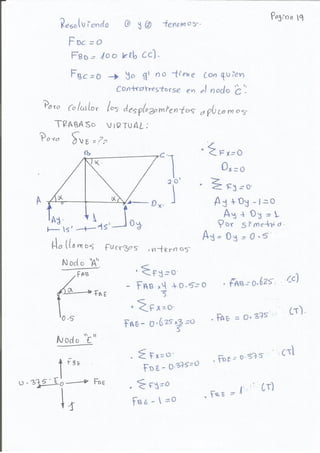 Pagina 19
Resolviendo @ y Ø tenemos:
FDC = 0
FBD = 100 klb (C).
FBC = 0 → Yo q' no tiene con quien
contrarrestarse en el nodo C.
Para Calcular los desplazamientos aplicamos
TRABAJO VIRTUAL:
Para δVE = ??
B
C
α
20'
A
α
α
Dx
Ay
1
Dy
15'
15'
· ΣFx=0
Dx=0
· ΣFy=0
Ay + Dy - 1 = 0
Ay + Dy = 1
Por simetria
Ay = Dy = 0.5
Hallamos fuerzas internas
Nodo "A"
FAB
α
FAE
0.5
· ΣFy=0
- FAB * 4/5 + 0.5 = 0
· FAB = 0.625. (C)
· ΣFx=0
FAE - 0.625 * 3/5 = 0
· FAE = 0.375 (T).
Nodo "E"
FBE
0.375
FDE
1
· ΣFx=0
FDE - 0.375=0
· FDE = 0.375 (T)
· ΣFy=0
FBE - 1 = 0
· FBE = 1 (T)